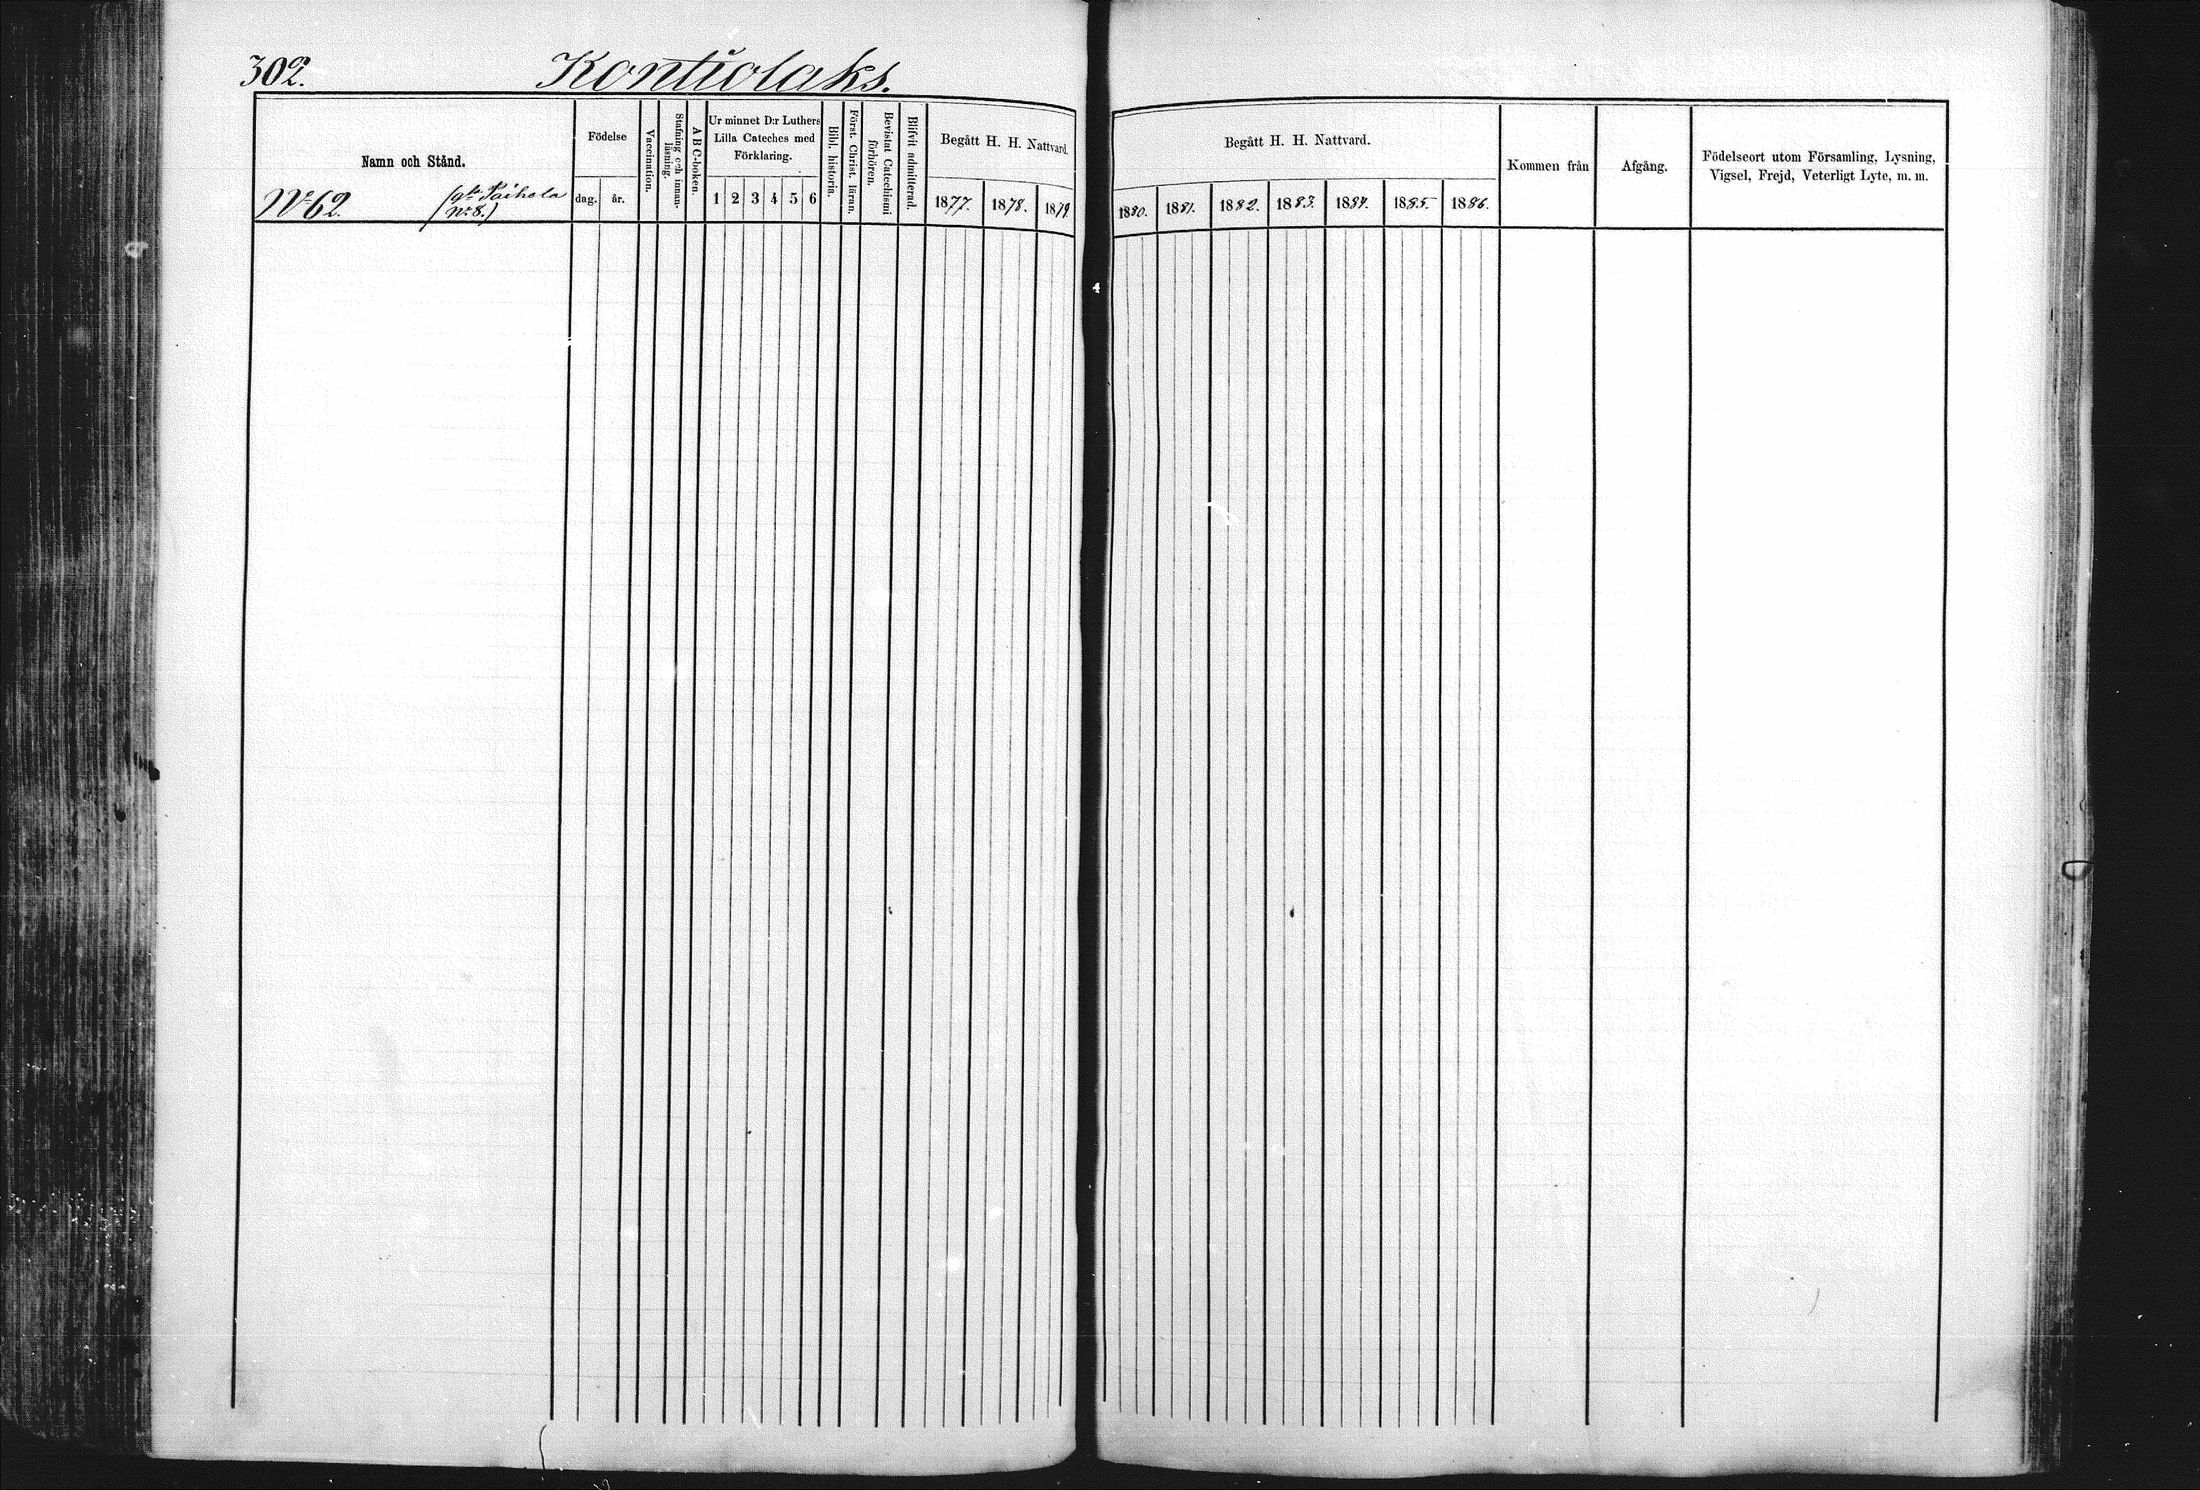 302.
Kontiolaks.
Namn och Stånd.
№ 62.
Paihola
№ 8.)
Födelse
dag.
år.
Vaccination.
Stafning och innan-
läsning.
ABC-boken.
Ur minnet D:r Luthers
Lilla Cateches med
Förklaring.
1 2 3 4 5 6
Bibl. historia.
Först. Christ. läran.
Bevistat Catechismi
förhören.
Blifvit admitterad.
Begått H. H. Nattvard.
1877. 1878. 1879
Begått H. H. Nattvard.
1880. 1881. 1882. 1883. 1884. 1885. 1886.
Kommen från
Afgång.
Födelseort utom Församling, Lysning,
Vigsel, Frejd, Veterligt Lyte, m. m.